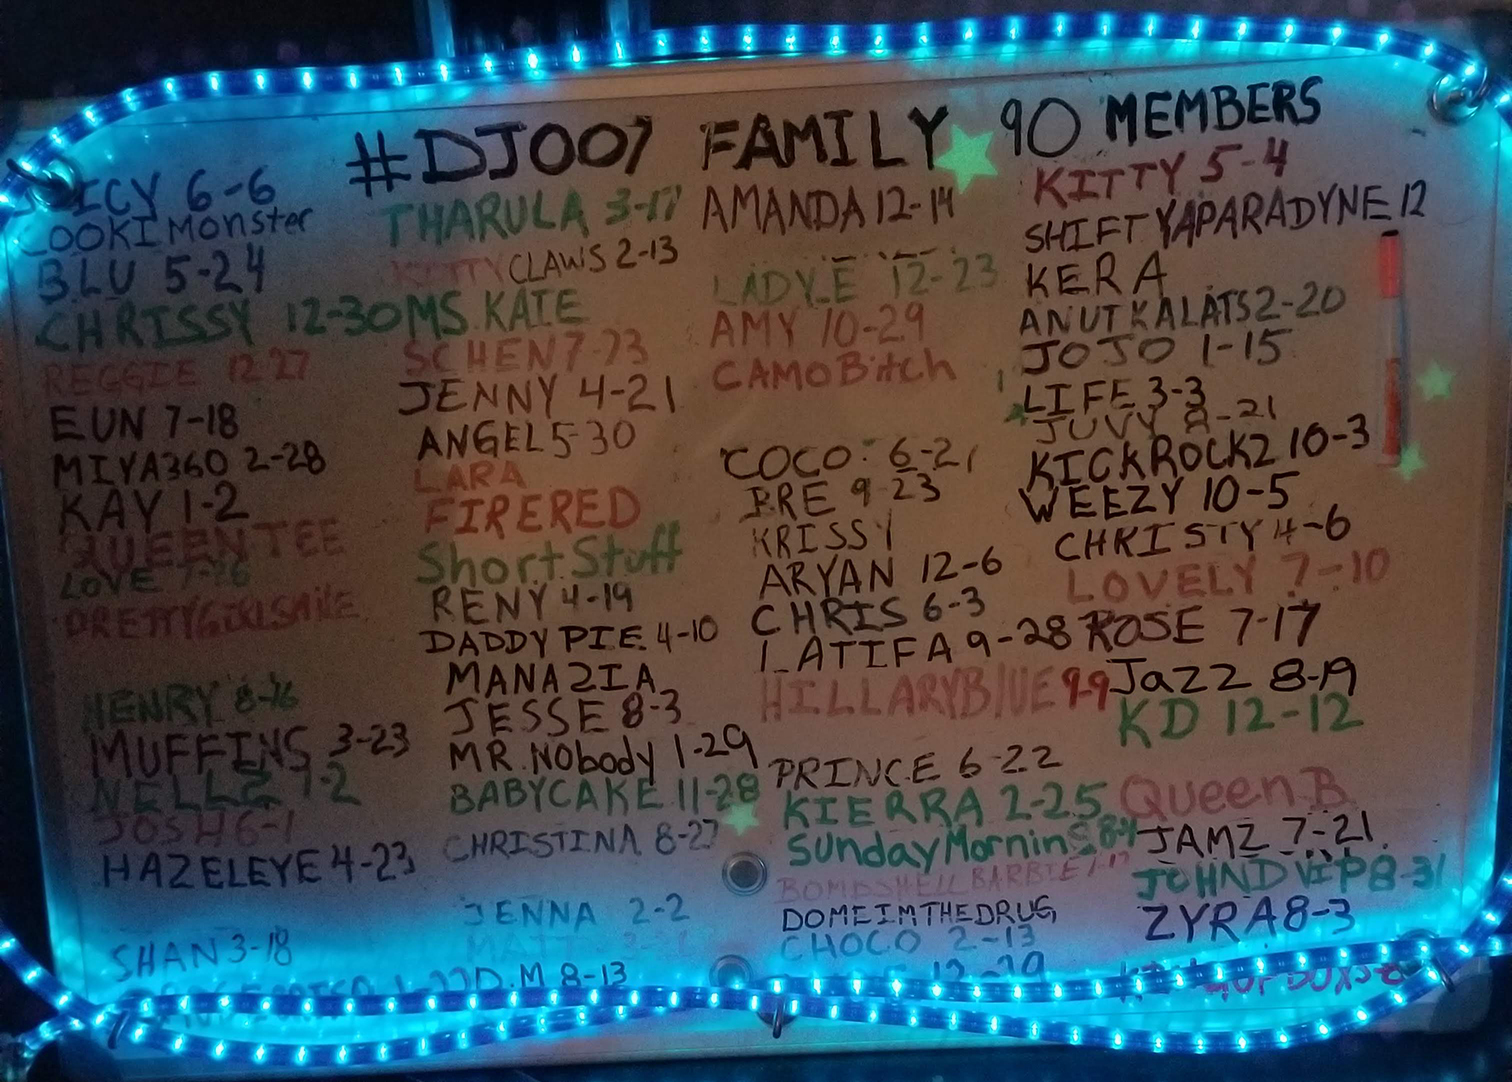 #DJ007 FAMILY 90 MEMBERS
ICY 6-6
COOKIMonster
BLU 5-24
CHRISSY 12-30
REGGIE 12-27
EUN 7-18
MIYA360 2-28
KAY 1-2
QUEENTEE
LOVE 7-16
HENRY 8-16
MUFFINS 3-23
NELLZ 1-2
JOSH 6-1
HAZELEYE 4-23
SHAN 3-18
THARULA 3-17
KITTYCLAWS 2-13
MS. KATE
SCHEN 7-23
JENNY 4-21
ANGEL 5-30
LARA
FIRERED
Short Stuff
RENY 4-19
DADDY PIE 4-10
MANAZIA
JESSE 8-3
MR. Nobody 1-29
BABYCAKE 11-28
CHRISTINA 8-27
JENNA 2-2
D.M 8-13
AMANDA 12-14
LADY.E 12-23
AMY 10-29
CAMOBitch
COCO 6-21
BRE 9-23
KRISSY
ARYAN 12-6
CHRIS 6-3
LATIFA 9-28
HILLARYBlUE 9-9
PRINCE 6-22
KIERRA 2-25
SundayMornings 8-4
BOMBSHELLBARBIE
DOMEIMTHEDRUG
CHOCO 2-13
KITTY 5-4
SHIFTYAPARADYNE 12
KERA
ANUTKALATS 2-20
JOJO 1-15
LIFE 3-3
JUVY 8-21
KICKROCKZ 10-3
WEEZY 10-5
CHRISTY 4-6
LOVELY 7-10
ROSE 7-17
Jazz 8-19
KD 12-12
Queen.B
JAMZ 7-21
JOHNDVIP 8-31
ZYRA 8-3